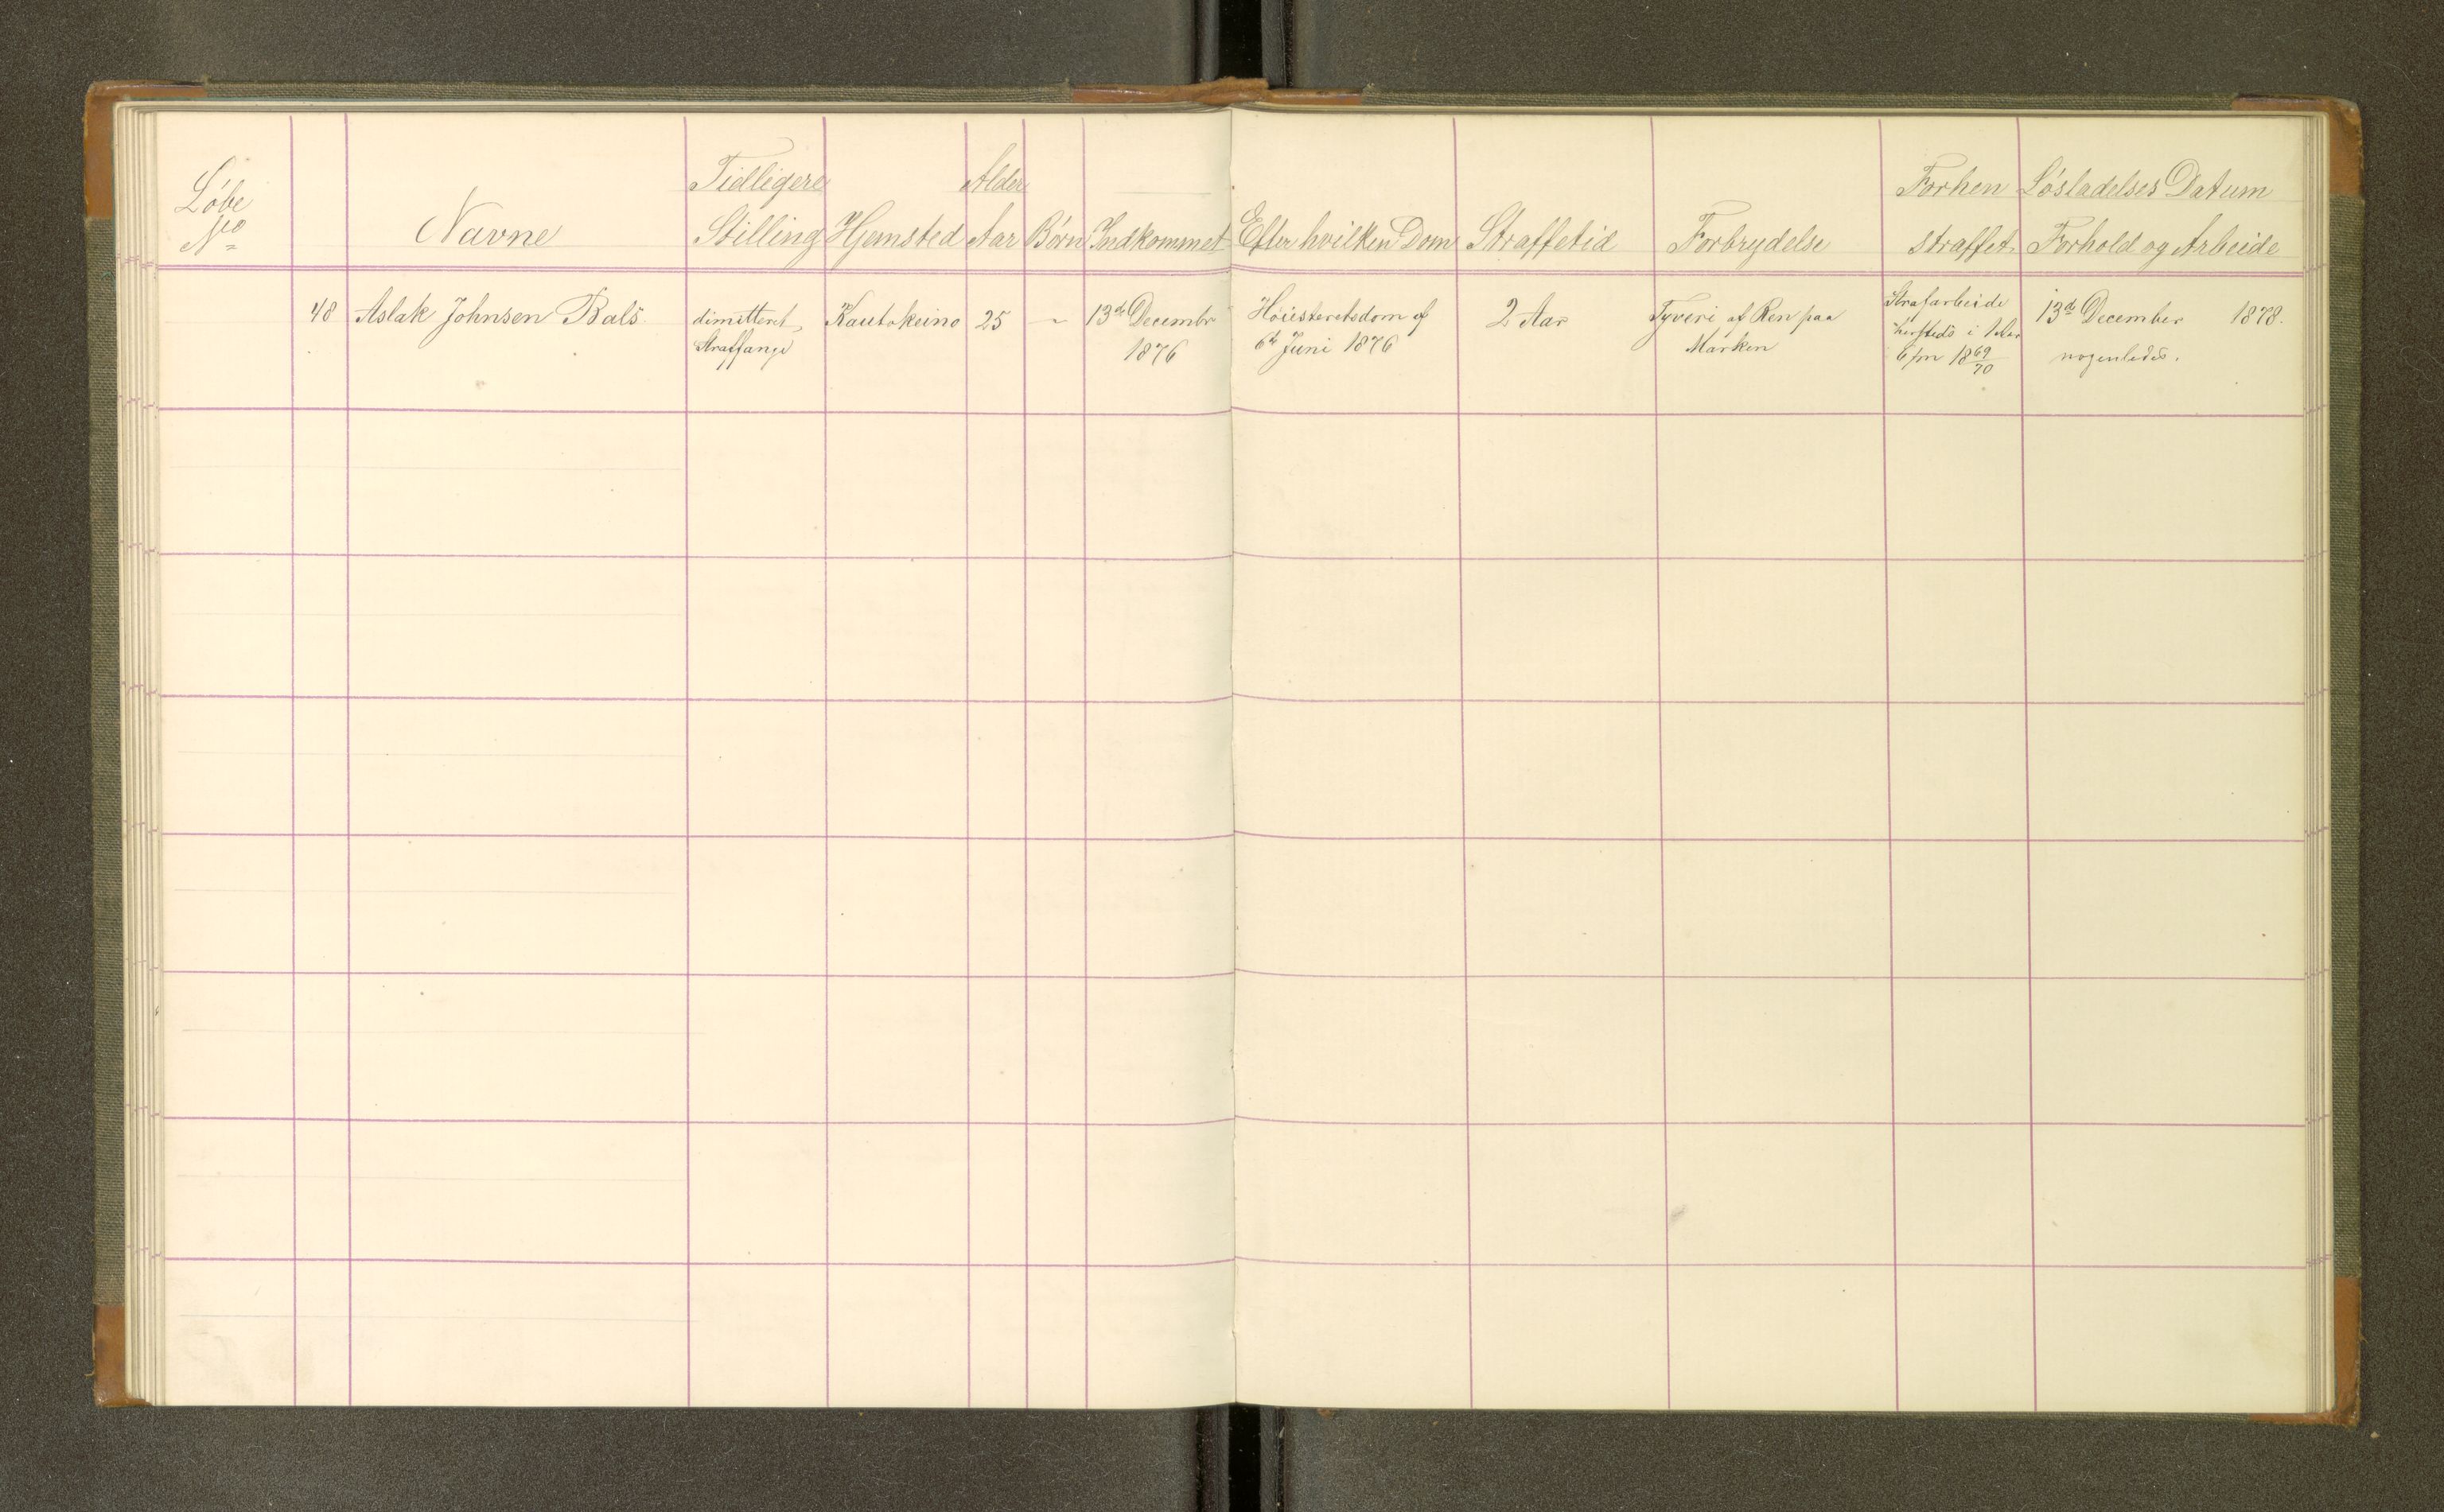 Løbe
No
Navne
Tidligere
Stilling
Hjemsted
Alder
Aar
Børn
Indkommet
Efter hvilken Dom
Straffetid
Forbrydelse
Forhen
straffet
Løsladelses Datum
Forhold og Arbeide
48
Aslak Johnsen Bals
dimitteret
Straffange
Kautokeino
25
-
13de Decembr
1876
Høiesteretsdom af
6te Juni 1876
2 Aar
Tyveri af Ren paa
Marken
Strafarbeide
hersteds i 1 Aar
6 1869/70
13de December 1878.
nogenledes.